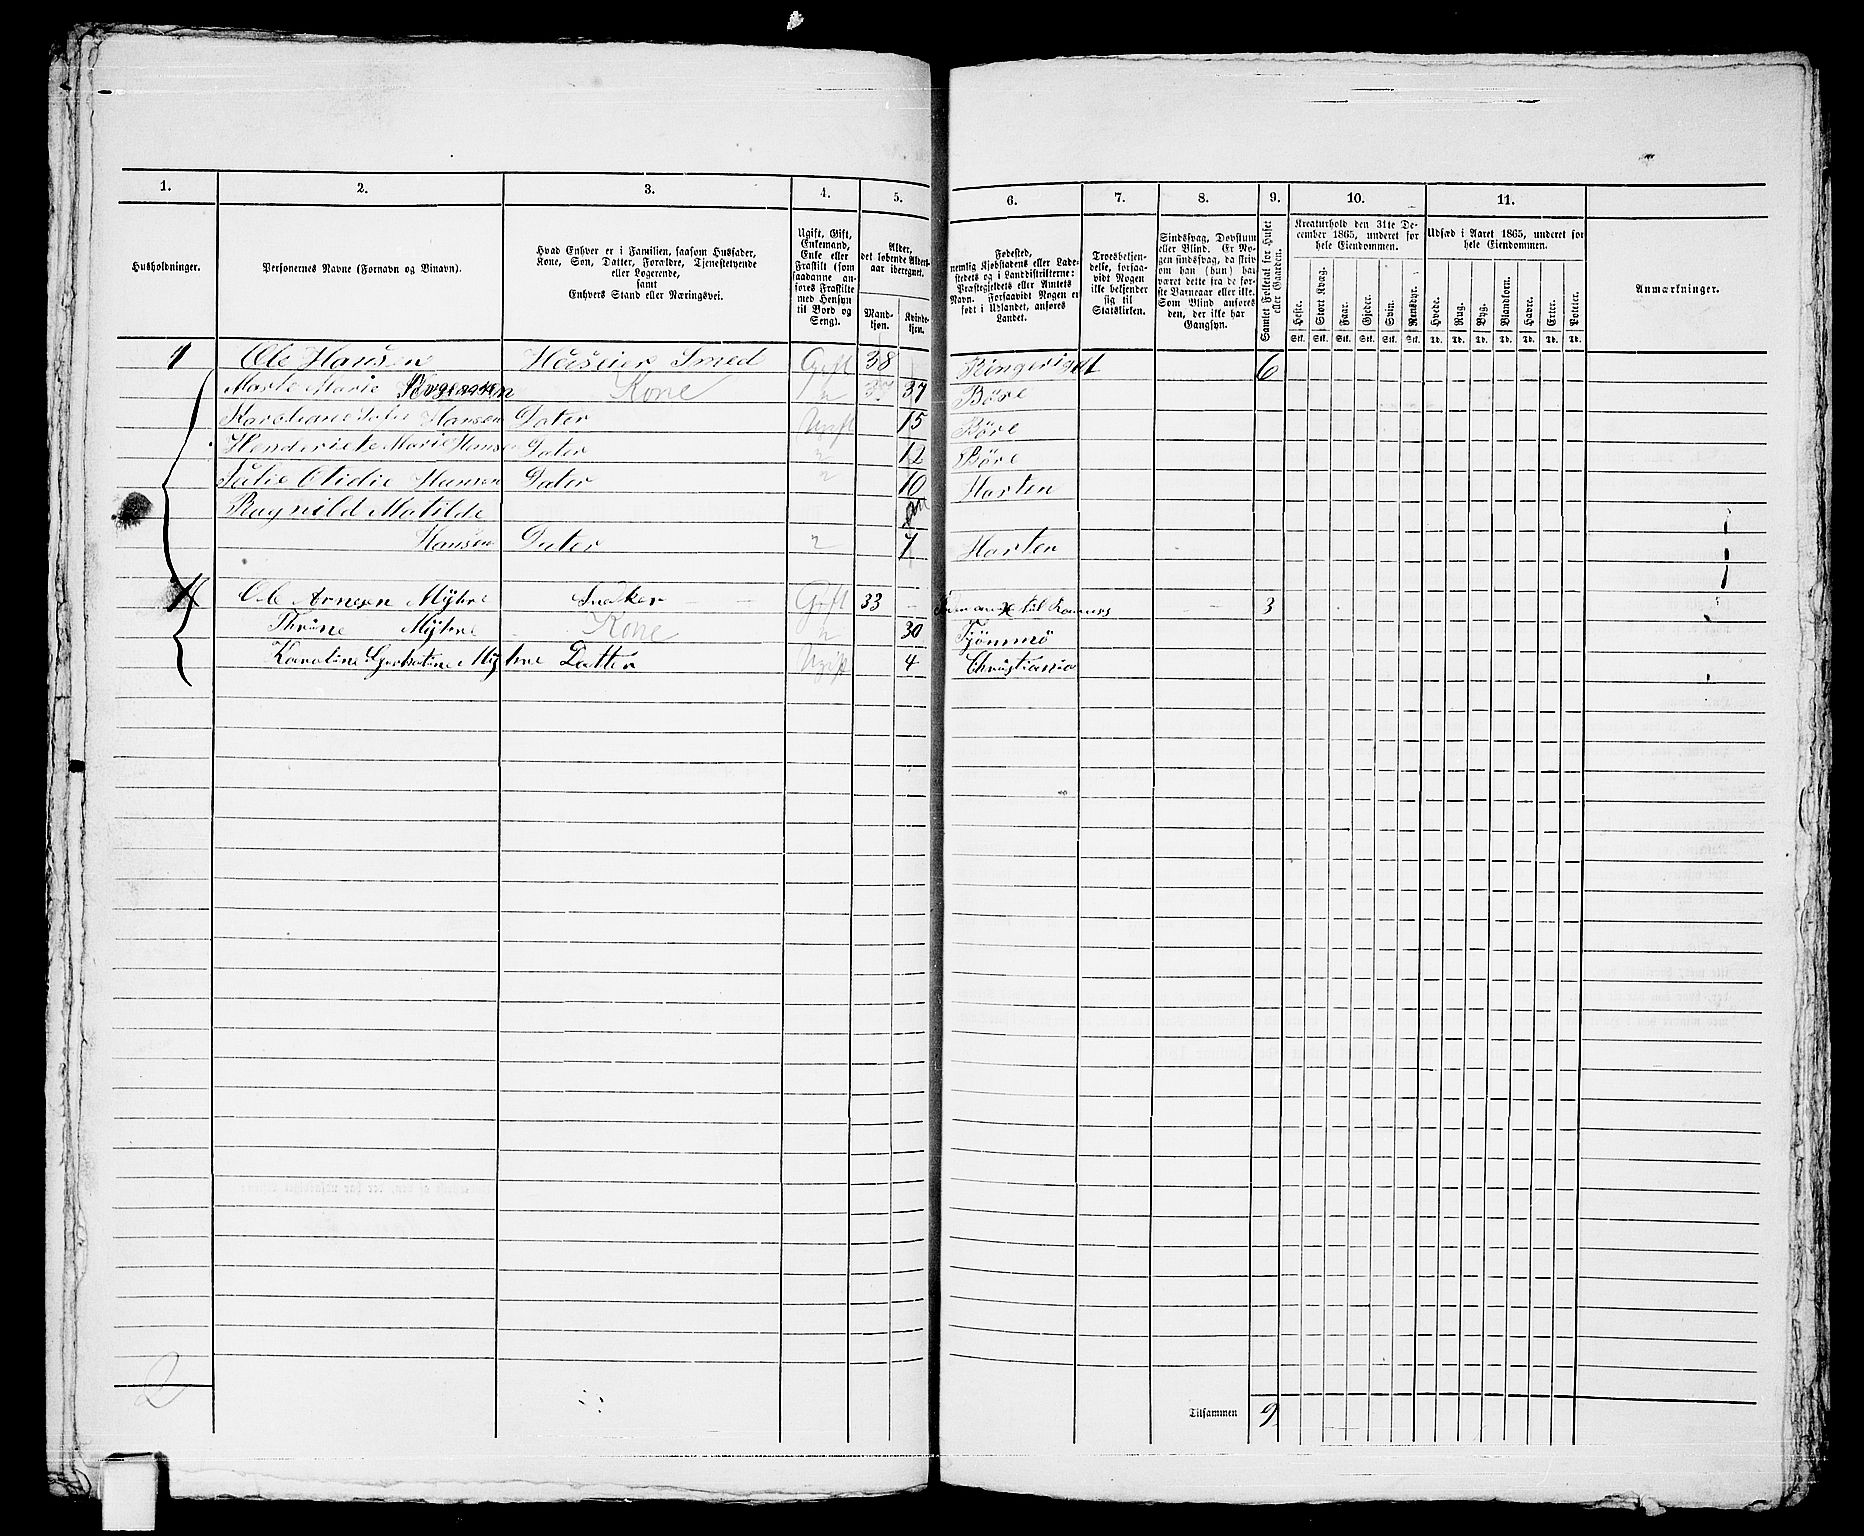 1. 2. 3. 4. 5. 6. 7. 8. 9. 10. 11.
Husholdninger.
Personernes Navne (Fornavn og Binavn).
Hvad Enhver er i Familien, saasom Husfader,
Kone, Søn, Datter, Forældre, Tjenestetyende
eller Logerende,
samt
Enhvers Stand eller Næringsvei.
Ugift, Gift,
Enkemand,
Enke eller
Fraskilt (som
saadanne an-
føres Fraskilte
med Hensyn
til Bord og
Seng).
Alder,
det løbende Alders-
aar iberegnet.
Mand-
kjøn.
Kvinde-
kjøn.
Fødested,
nemlig Kjøbstadens eller Lade-
stedets og i Landdistrikterne:
Præstegjeldets eller Amtets
Navn. Forsaavidt Nogen er
født i Udlandet, anføres
Landet.
Troesbekjen-
delse, forsaa-
vidt Nogen
ikke bekjender
sig til
Statskirken.
Sindssvag, Døvstum
eller Blind. Er No-
gen sindssvag, da skriv
om han (hun) har
været dette fra de før-
ste Barneaar eller ikke.
Som Blind anføres
den, der ikke har
Gangsyn.
Samlet Folketal for Huset
eller Gaarden.
Kreaturhold den 31te De-
cember 1865, underet for
hele Eiendommen.
Heste. Stort Kvæg. Faar. Gjeder. Svin. Rensdyr.
Stk. Stk. Stk. Stk. Stk. Stk.
Udsæd i Aaret 1865, underet for
hele Eiendommen.
Hvede. Rug. Byg. Blandkorn. Havre. Erter. Poteter.
Td. Td. Td. Td. Td. Td. Td.
Anmærkninger.
1 Ole Hansen Huseier Smed Gift 38 Ringeriget 6
Marte Marie Kone " 37 Böre
Hansen Dater Ugift 15 Böre
Henderiete Marie Hansen Dater " 12 Böre
Julie Otidie Hansen Dater " 10 Horten
Ragnild Matilde
Hansen Dater " 7 Horten
Ole Arnesen Myhre Snekker Gift 33 3
Thrine Myhre Kone " 30 Tjömmö
Karoline Myhre Datter Ugift 4 Christiania
2
Tilsammen 9